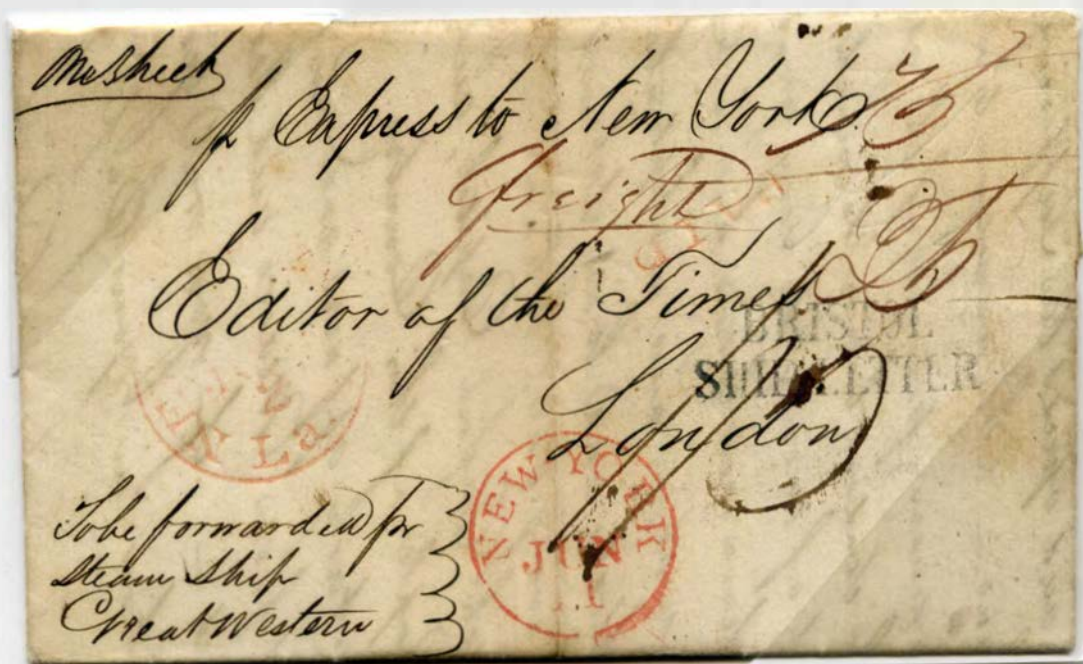 One Sheet
p Express to New York 75
freight
Editor of the Times 25
BRISTOL
SHIP LETTER
London
La
NEW YORK
JUN
To be forwarded pr
Steam Ship
Great Western